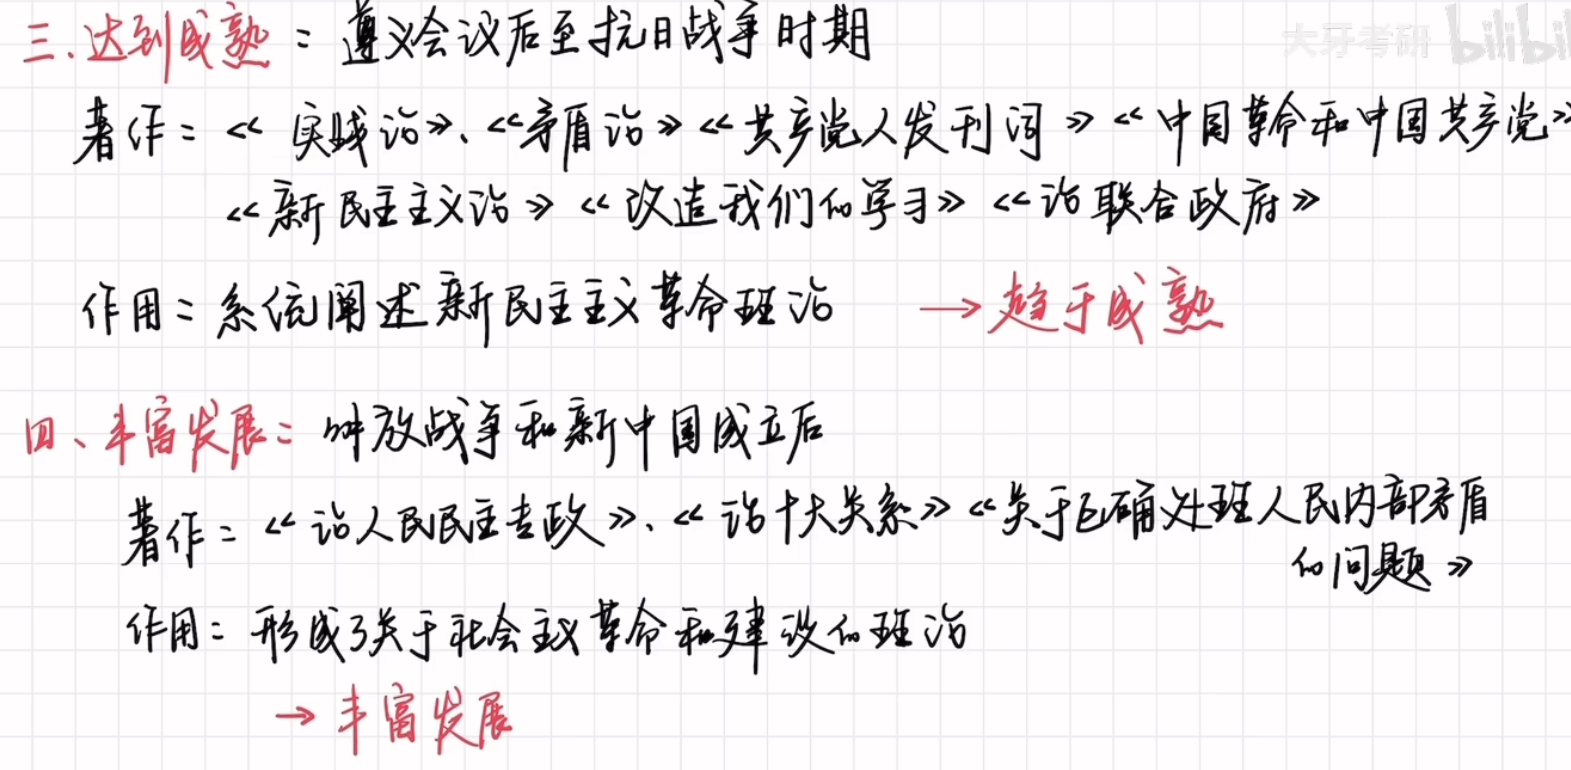 三、达到成熟：遵义会议后至抗日战争时期
大牙考研 bilibil
著作：《实践论》、《矛盾论》《共产党人发刊词》《中国革命和中国共产党》
《新民主主义论》《改造我们的学习》《论联合政府》
作用：系统阐述新民主主义革命理论 →趋于成熟
四、丰富发展：解放战争和新中国成立后
著作：《论人民民主专政》、《论十大关系》《关于正确处理人民内部矛盾
的问题》
作用：形成了关于社会主义革命和建设的理论
→丰富发展